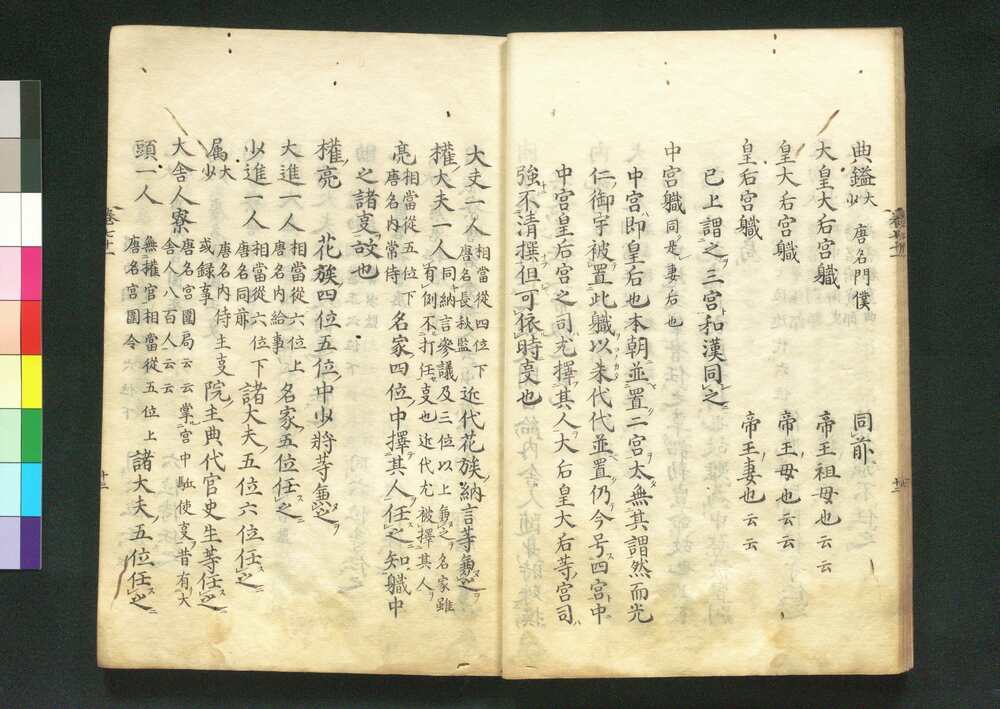 典鎰大少 唐名門僕 同前
大皇大后宮職 帝王祖母也云云
皇大后宮職 帝王母也云云
皇后宮職 帝王妻也云云
已上謂之三宮和漢同之
中宮職同是妻右也
中宮即皇后也本朝並置二宮太無其謂然而光
仁御宇被置此職以来代代並置仍今号四宮中
中宮皇后宮之司尤擇其人大后皇大后等宮司
強不清撰但可依時叓也
大夫一人相當從四位下唐名長秋監近代花族納言等兼之
權大夫一人同納言參議及三位以上兼之名家雖有例不打任叓也近代尤被擇其人
亮相當從五位下唐名内常侍名家四位中擇其人任之知職中
之諸叓故也
權亮 花族四位五位中少將等兼之
大進一人相當從六位上唐名内給事名家五位任之
少進一人相當從六位下唐名同前諸大夫五位六位任之
属大少唐名内侍主叓或録事院主典代官史生等任之
大舎人寮唐名宮圍局云云掌宮中駈使叓昔有大舎人八百人云云
頭一人無權官相當從五位上唐名宮圍令諸大夫五位任之